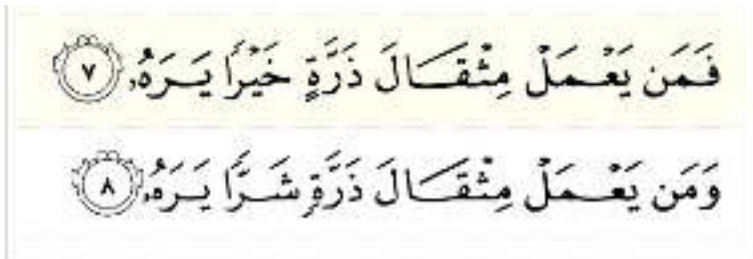 فَمَن يَعْمَلْ مِثْقَالَ ذَرَّةٍ خَيْرًا يَرَهُۥ ٧
وَمَن يَعْمَلْ مِثْقَالَ ذَرَّةٍ شَرًّا يَرَهُۥ ٨